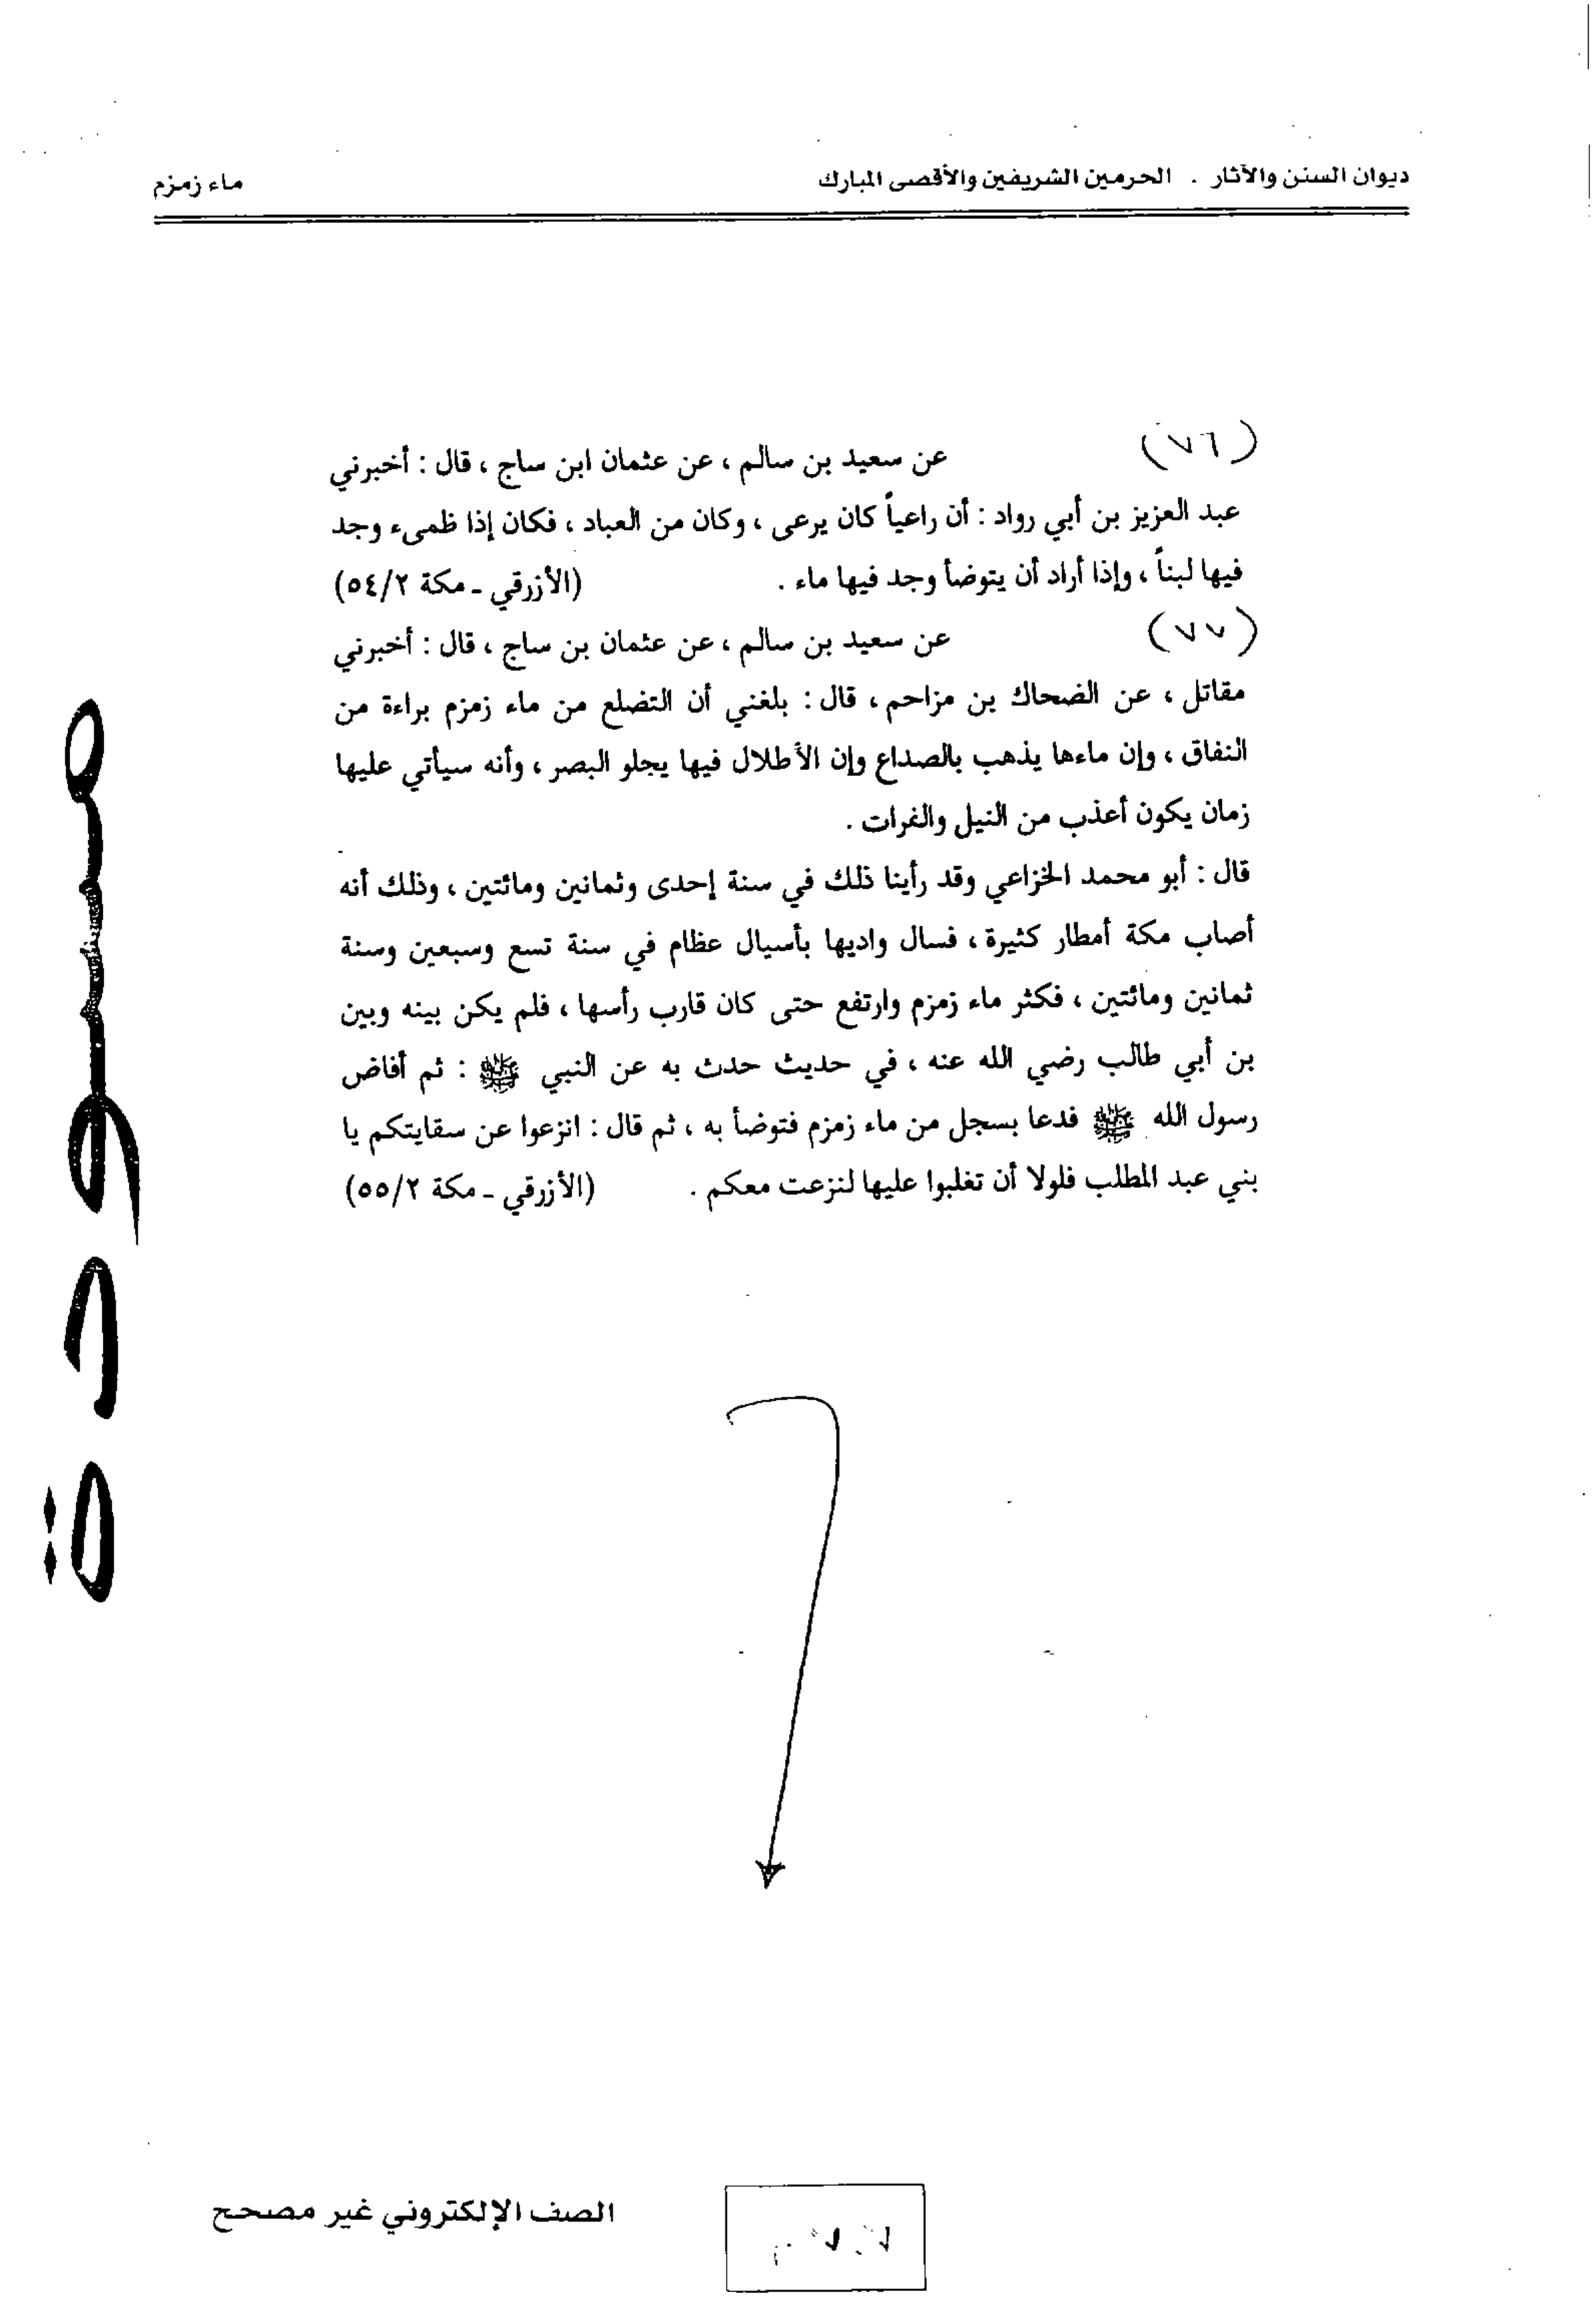 ديوان السنن والآثار . الحرمين الشريفين والأقصى المبارك ماء زمزم
(٧٦) عن سعيد بن سالم ، عن عثمان ابن ساج ، قال : أخبرني
عبد العزيز بن أبي رواد : أن راعياً كان يرعى ، وكان من العباد ، فكان إذا ظمىء وجد
فيها لبناً ، وإذا أراد أن يتوضأ وجد فيها ماء . (الأزرقي ـ مكة ٥٤/٢)
(٧٧) عن سعيد بن سالم ، عن عثمان بن ساج ، قال : أخبرني
مقاتل ، عن الضحاك بن مزاحم ، قال : بلغني أن التضلع من ماء زمزم براءة من
النفاق ، وإن ماءها يذهب بالصداع وإن الأطلال فيها يجلو البصر ، وأنه سيأتي عليها
زمان يكون أعذب من النيل والفرات .
قال : أبو محمد الخزاعي وقد رأينا ذلك في سنة إحدى وثمانين ومائتين ، وذلك أنه
أصاب مكة أمطار كثيرة ، فسال واديها بأسيال عظام في سنة تسع وسبعين وسنة
ثمانين ومائتين ، فكثر ماء زمزم وارتفع حتى كان قارب رأسها ، فلم يكن بينه وبين
بن أبي طالب رضي الله عنه ، في حديث حدث به عن النبي ﷺ : ثم أفاض
رسول الله ﷺ فدعا بسجل من ماء زمزم فتوضأ به ، ثم قال : انزعوا عن سقايتكم يا
بني عبد المطلب فلولا أن تغلبوا عليها لنزعت معكم . (الأزرقي ـ مكة ٥٥/٢)
مسودة
الصف الإلكتروني غير مصحح